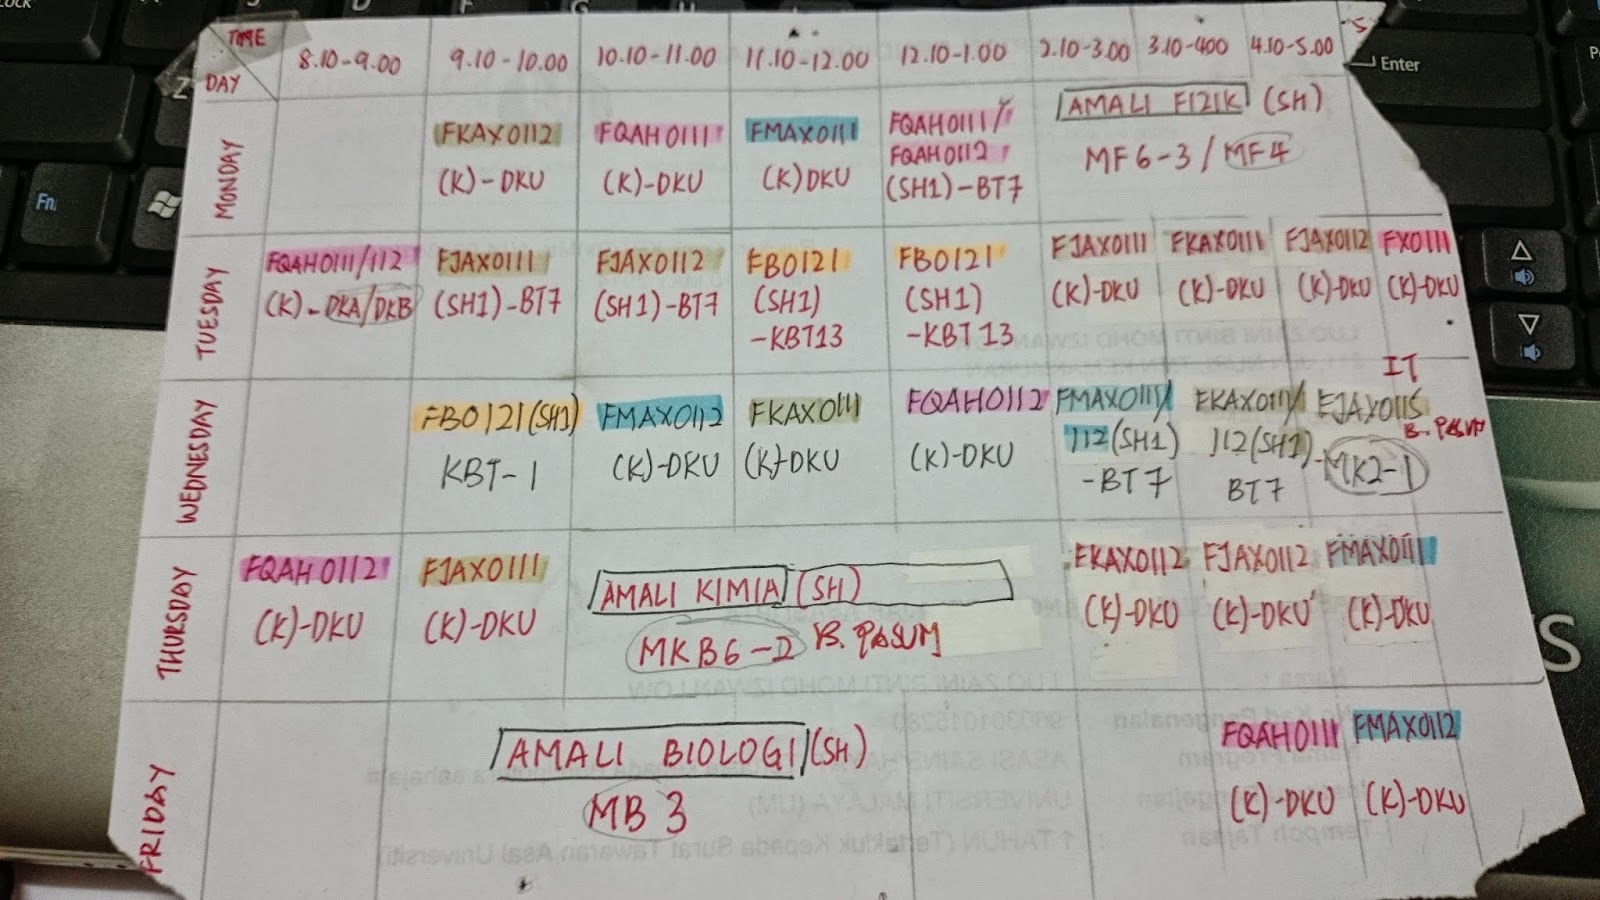 TIME
DAY
8.10-9.00
9.10-10.00
10.10-11.00
11.10-12.00
12.10-1.00
2.10-3.00
3.10-400
4.10-5.00
5
MONDAY
FKAX0112
(K)-DKU
FQAH0111
(K)-DKU
FMAX0111
(K) DKU
FQAH0111/
FQAH0112
(SH1)-BT7
AMALI FIZIK (SH)
MF6-3 / MF4
TUESDAY
FQAH0111/112
(K)-DKA/DKB
FJAX0111
(SH1)-BT7
FJAX0112
(SH1)-BT7
FB0121
(SH1)
-KBT13
FB0121
(SH1)
-KBT13
FJAX0111
(K)-DKU
FKAX0111
(K)-DKU
FJAX0112
(K)-DKU
FX0111
(K)-DKU
WEDNESDAY
FB0121(SH1)
KBT-1
FMAX0112
(K)-DKU
FKAX0111
(K)-DKU
FQAH0112
(K)-DKU
FMAX0111/
112(SH1)
-BT7
FKAX0111/
112(SH1)-
BT7
IT
FJAX0115
B. PASUM
MK2-1
THURSDAY
FQAH0112
(K)-DKU
FJAX0111
(K)-DKU
AMALI KIMIA (SH)
MKB6-2 B. PASUM
FKAX0112
(K)-DKU
FJAX0112
(K)-DKU
FMAX0111
(K)-DKU
FRIDAY
AMALI BIOLOGI (SH)
MB 3
FQAH0111
(K)-DKU
FMAX0112
(K)-DKU
Enter
Fn